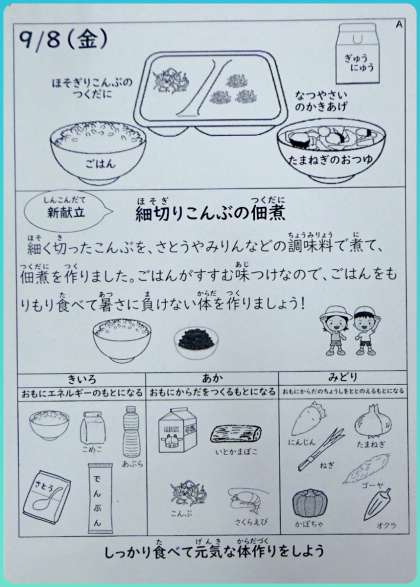 A
9/8(金)
ほそぎりこんぶの
つくだに
ぎゅう
にゅう
なつやさい
のかきあげ
ごはん
たまねぎのおつゆ
しんこんだて
新献立
ほそぎ つくだに
細切りこんぶの佃煮
ほそ き ちょうみりょう に
細く切ったこんぶを、さとうやみりんなどの調味料で煮て、
つくだに つく あじ
佃煮を作りました。ごはんがすすむ味つけなので、ごはんをも
た あつ ま からだ つく
りもり食べて暑さに負けない体を作りましょう!
きいろ
おもにエネルギーのもとになる
あか
おもにからだをつくるもとになる
みどり
おもにからだのちょうしをととのえるもとになる
こめこ
あぶら
さとう
でんぷん
いとかまぼこ
こんぶ
さくらえび
にんじん
たまねぎ
ねぎ
ゴーヤ
かぼちゃ
オクラ
た げんき からだづく
しっかり食べて元気な体作りをしよう